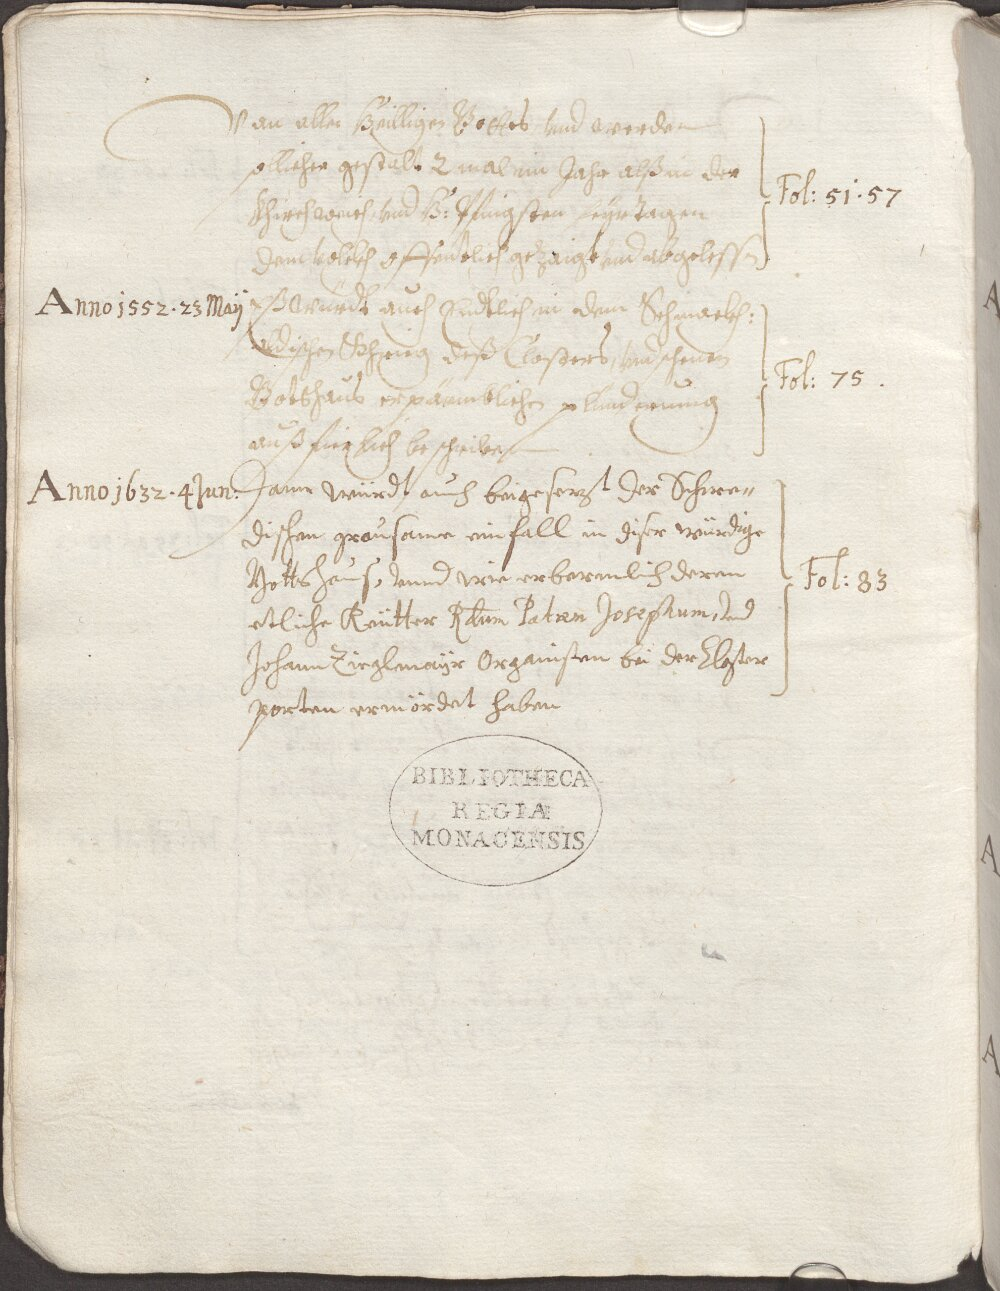 Von aller Heilligen Gottes, und werden
etlicher gestalt 2 mal im Jahr alß in der
Kirchweich und H: Pfingsten feyrtagen
dem volckh offentlich gezaigt und abgelesen
Fol: 51·57
Anno 1552·23 Maÿ
Eß würdt auch endtlich in dem Schmalckh:
aldischen Khrieg deß Closters, und schenen
Gottshaus erpärmbliche plinderung
außfierlich beschriben
Fol: 75.
Anno 1632·4 Jun:
Dann würdt auch beigesetzt der Schwe„
dischen grausame einfall in diser würdige
Gottshaus, unnd wie erbermlich deren
etliche Reütter Rdum Patrem Josephum, und
Johann Zieglmaÿr Organisten bei der Closter
porten ermördet haben
Fol: 83
BIBLIOTHECA
REGIA
MONACENSIS